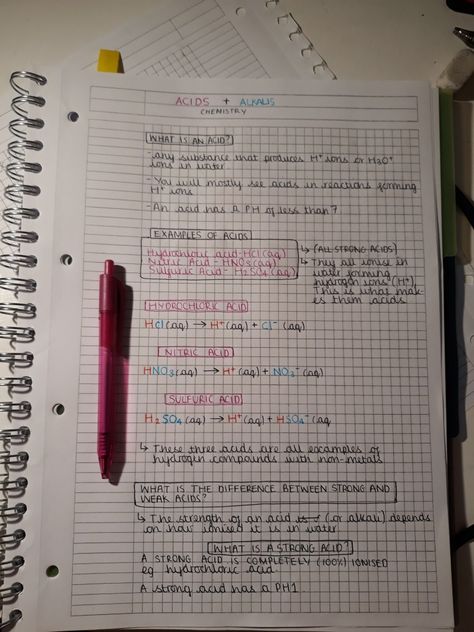 ACIDS + ALKALIS
CHEMISTRY
WHAT IS AN ACID?
- any substance that produces H⁺ ions or H₃O⁺
ions in water
- You will mostly see acids in reactions forming
H⁺ ions
- An acid has a PH of less than 7
EXAMPLES OF ACIDS
Hydrochloric acid - HCl (aq)
Nitric Acid - HNO₃ (aq)
Sulfuric Acid - H₂SO₄ (aq)
↳ (ALL STRONG ACIDS)
↳ They all ionise in
water forming
hydrogen ions (H⁺)
This is what mak-
es them acids.
HYDROCHLORIC ACID
HCl (aq) → H⁺ (aq) + Cl⁻ (aq)
NITRIC ACID
HNO₃ (aq) → H⁺ (aq) + NO₃⁻ (aq)
SULFURIC ACID
H₂SO₄ (aq) → H⁺ (aq) + HSO₄⁻ (aq
↳ These three acids are all examples of
hydrogen compounds with non-metals
WHAT IS THE DIFFERENCE BETWEEN STRONG AND
WEAK ACIDS?
↳ The strength of an acid (or alkali) depends
on how ionised it is in water
WHAT IS A STRONG ACID?
A STRONG ACID IS COMPLETELY (100%) IONISED
eg hydrochloric acid.
A strong acid has a PH1.